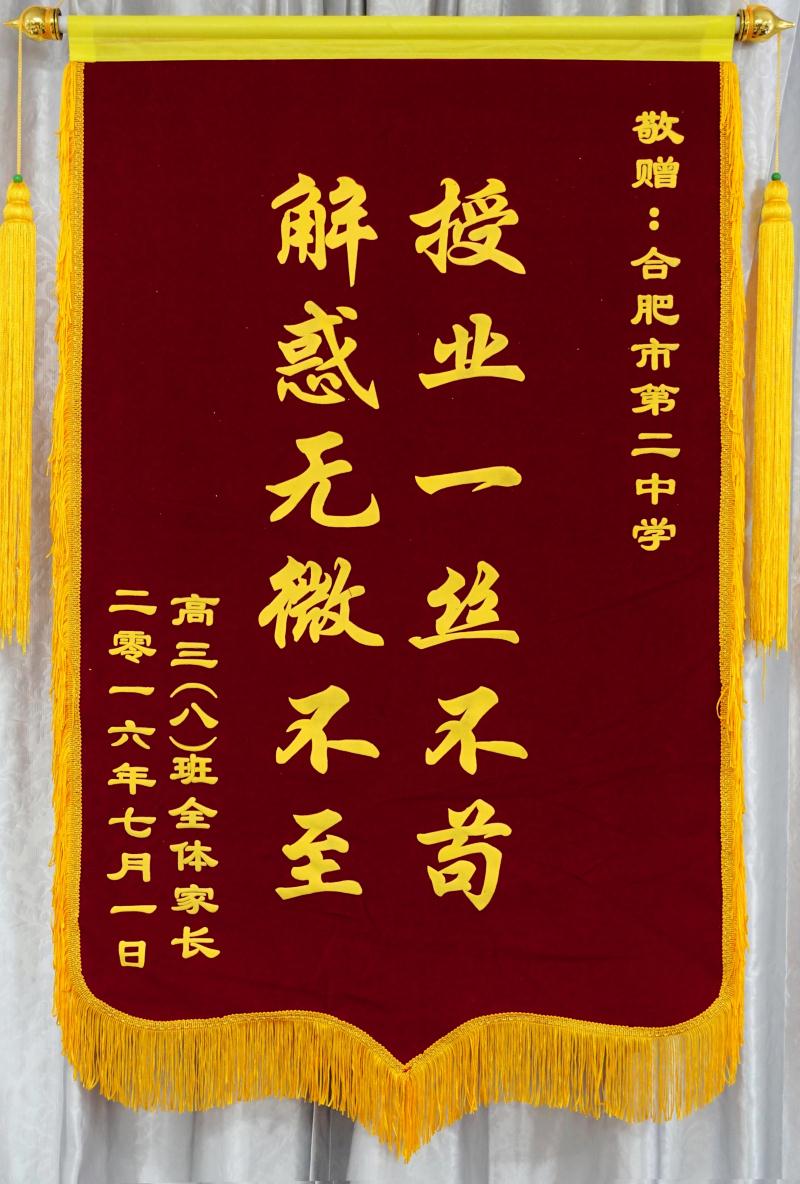 敬赠：合肥市第二中学
授业一丝不苟
解惑无微不至
高三（八）班全体家长
二零一六年七月一日